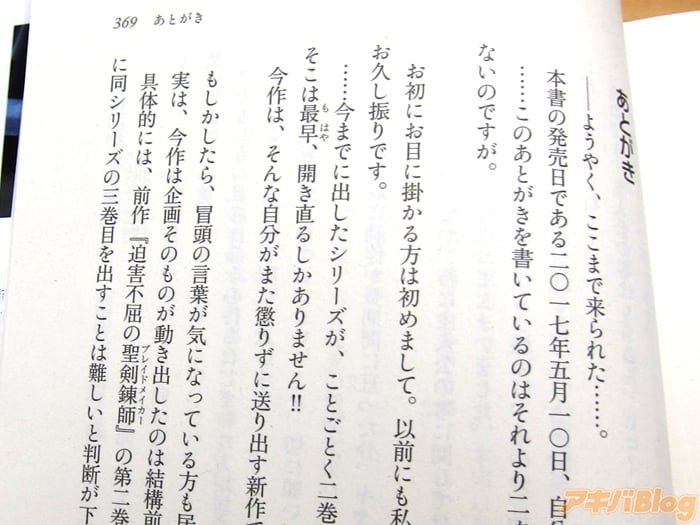 369 あとがき
あとがき
――ようやく、ここまで来られた……。
本書の発売日である二〇一七年五月一〇日、自分
……このあとがきを書いているのはそれより二
ないのですが。
お初にお目に掛かる方は初めまして。以前にも私
お久し振りです。
……今までに出したシリーズが、ことごとく二巻
そこは最早、開き直るしかありません!!
今作は、そんな自分がまた懲りずに送り出す新作で
もしかしたら、冒頭の言葉が気になっている方も居
実は、今作は企画そのものが動き出したのは結構前
具体的には、前作『迫害不屈の聖剣錬師』の第二巻
に同シリーズの三巻目を出すことは難しいと判断が下
もはや
ブレイドメイカー
アキバBlog